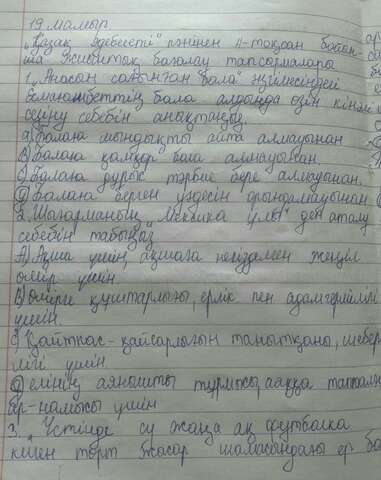 19 мамыр
"Қазақ әдебиеті" пәнінен 4-тоқсан бойын-
ша жиынтық бағалау тапсырмалары
1. "Анасын сағынған бала" әңгімесіндегі
Есмағанбеттің бала алдында өзін кінәлі
сезіну себебін анықтаңыз.
а) Балаға шындықты айта алмауынан
В) Балаға қамқор бола алмауынан.
с) Балаға дұрыс тәрбие бере алмауынан
Д) Балаға берген уәдесін орындамауынан
2. Шығарманың "Мексика ұлы" деп аталу
себебін табыңыз
А) Ақша үшін, ақшаға негізделген жеңіл
өмір үшін
В) Өмірге құштарлығы, ерлік пен адамгершілігі
үшін
С) Қайтпас-қайсарлығын танытқаны, шебер
лігі үшін
Д) елінің аянышты тұрмысы, аяққа тапталған
ар-намысы үшін
3. "Үстінде су жаңа ақ футболка
киген төрт жасар шамасындағы ер ба